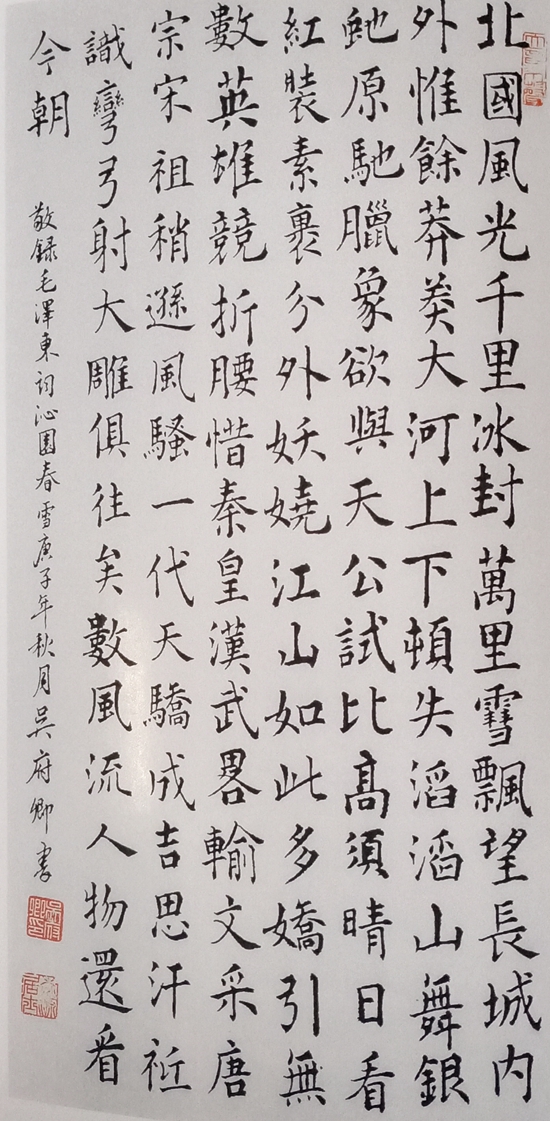 北國風光千里冰封萬里雪飄望長城内
外惟餘莽莽大河上下頓失滔滔山舞銀
虵原馳臘象欲與天公試比高須晴日看
紅裝素裹分外妖嬈江山如此多嬌引無
數英雄競折腰惜秦皇漢武畧輸文采唐
宗宋祖稍遜風騷一代天驕成吉思汗祗
識彎弓射大雕俱往矣數風流人物還看
今朝
敬録毛澤東詞沁園春雪庚子年秋月吳府卿書